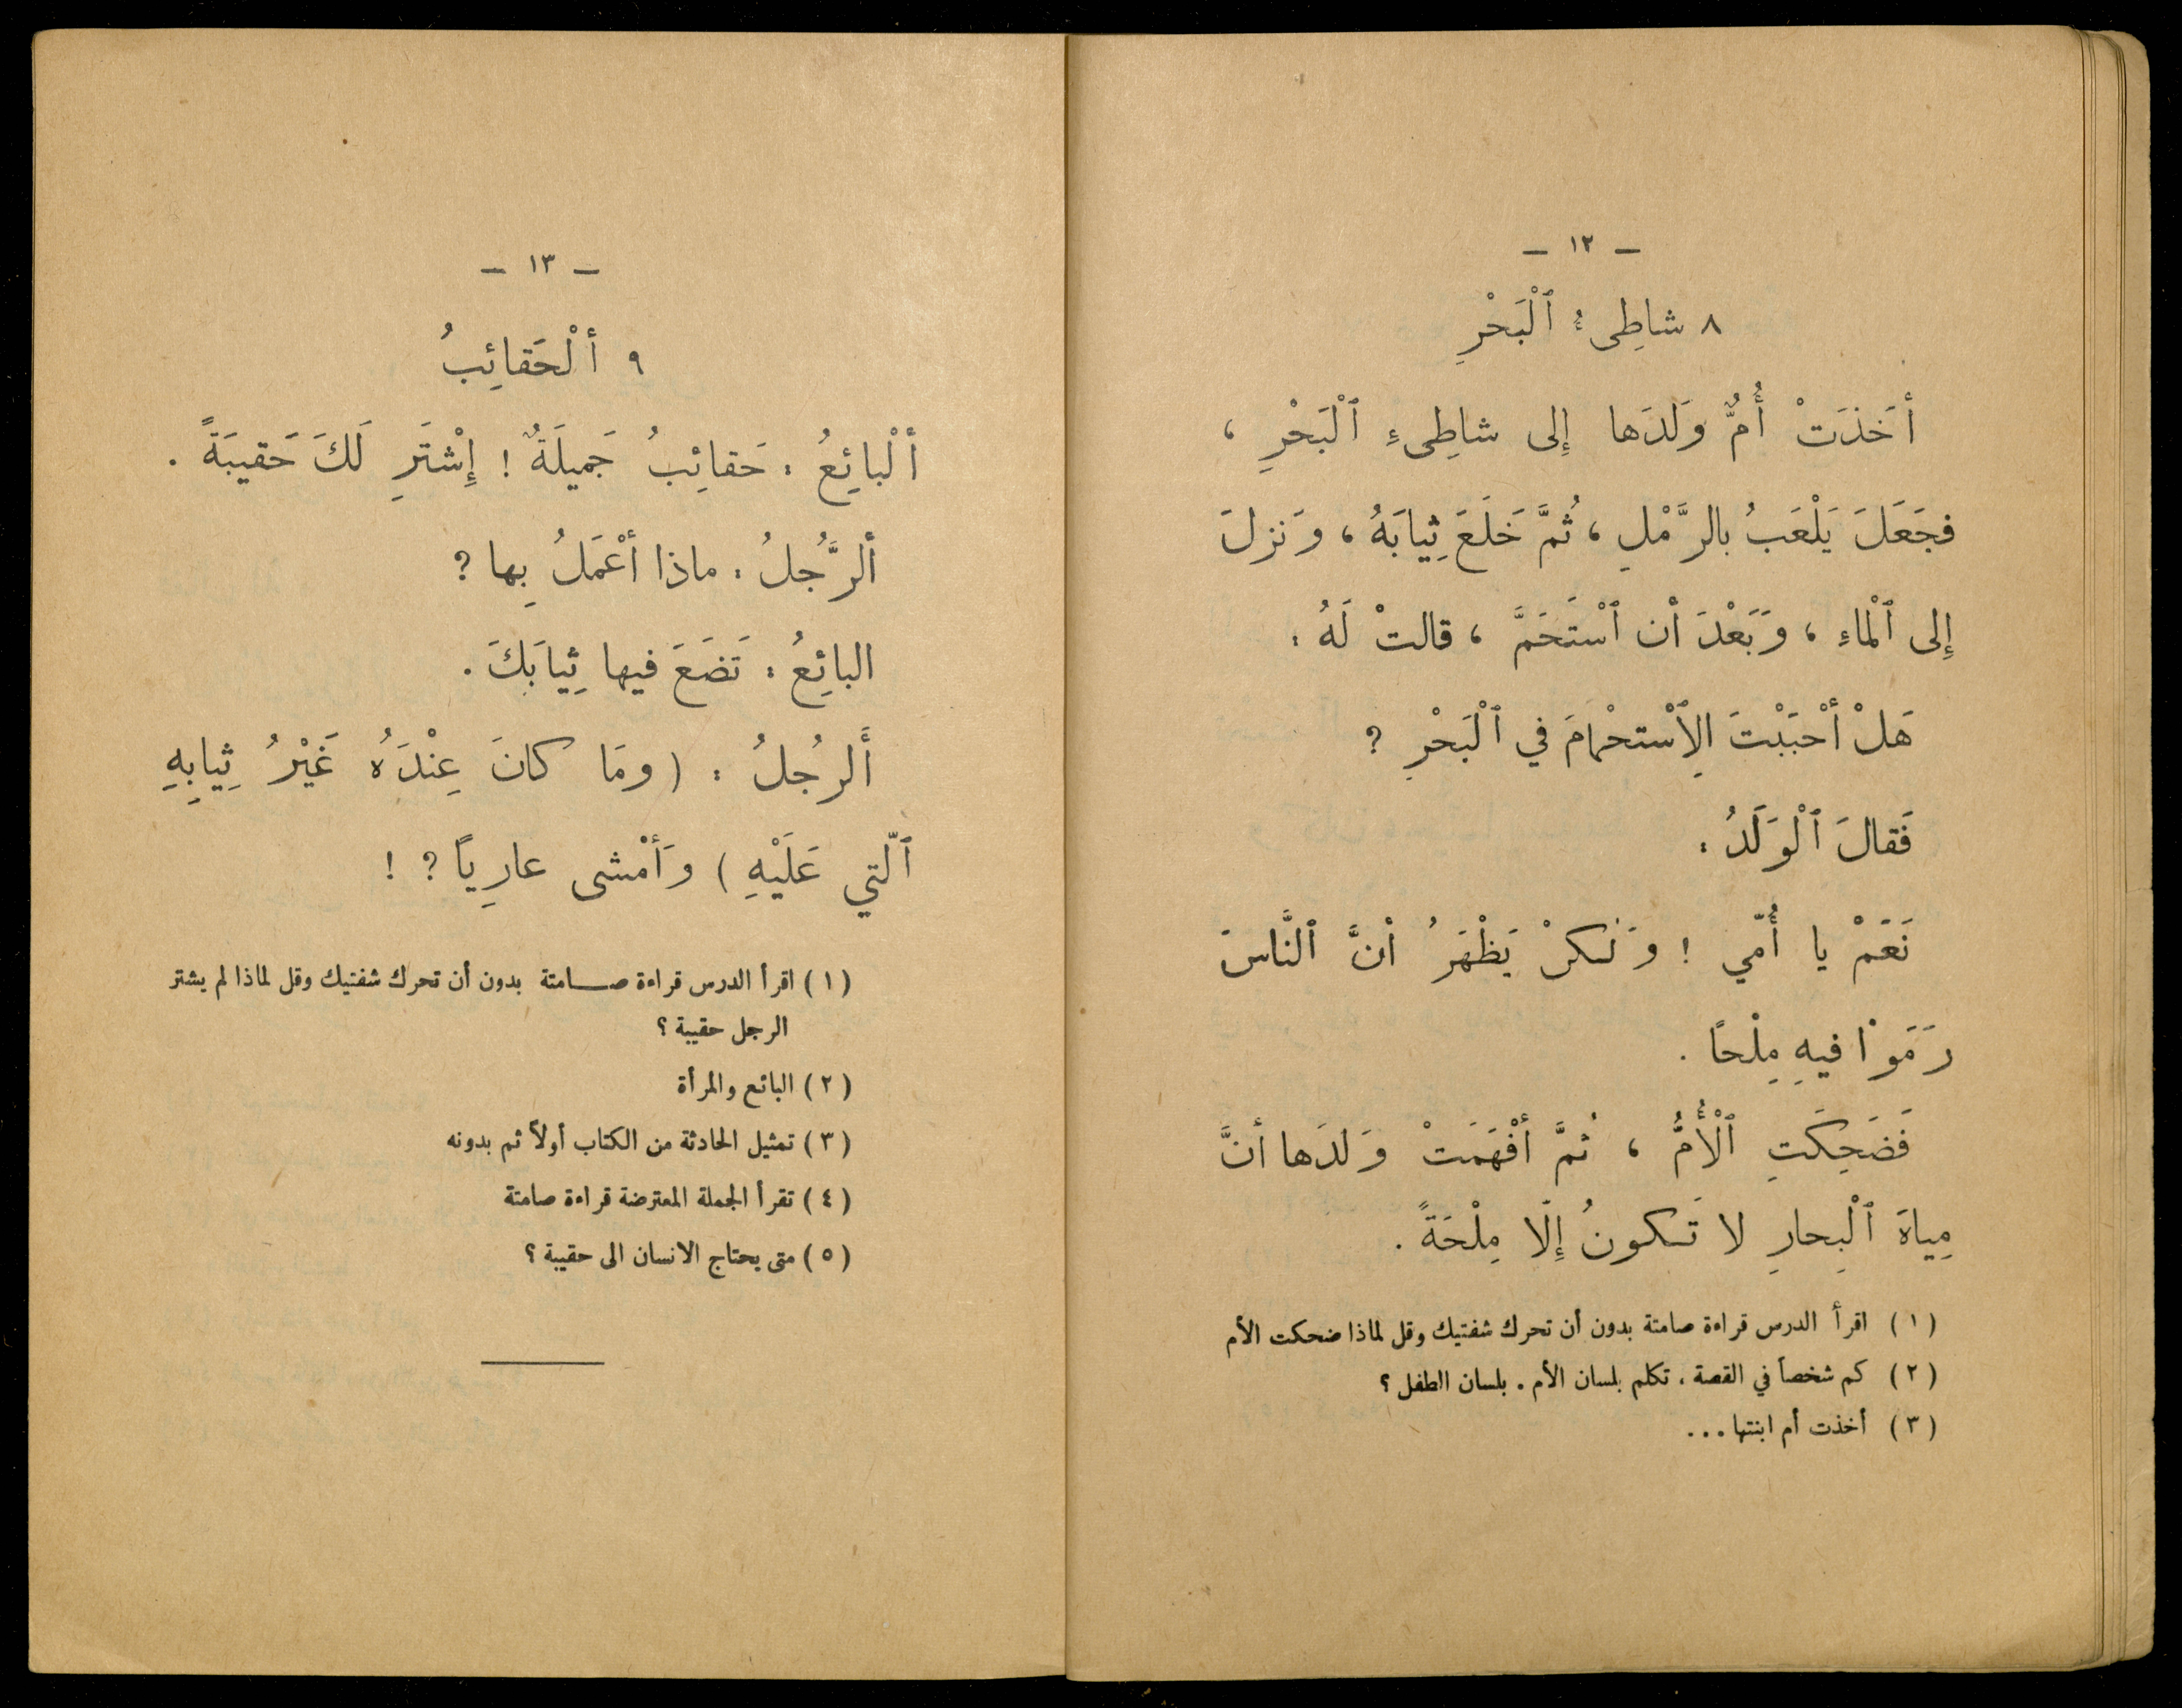 — ١٢ —
٨ شاطِىءُ ٱلْبَحْرِ
أخَذَتْ أُمٌّ وَلَدَها إِلى شاطِىءِ ٱلْبَحْرِ ،
فجَعَلَ يَلْعَبُ بالرَّمْلِ ، ثُمَّ خَلَعَ ثِيابَهُ ، وَنزلَ
إِلى ٱلْماءِ ، وَبَعْدَ أنْ ٱسْتَحَمَّ ، قالتْ لَهُ :
هَلْ أحْبَبْتَ الِٱسْتحْمامَ في ٱلْبَحْرِ ؟
فَقالَ ٱلْوَلَدُ :
نَعَمْ يا أُمّي ! وَلٰكنْ يَظْهَرُ أنَّ ٱلنَّاسَ
رَمَوْا فيهِ مِلْحًا .
فَضَحِكَتِ ٱلْأُمُّ ، ثُمَّ أفْهَمَتْ وَلَدَها أنَّ
مِياهَ ٱلْبِحارِ لا تَكونُ إِلّا مِلْحَةً .
( ١ ) اقرأ الدرس قراءة صامتة بدون أن تحرك شفتيك وقل لماذا ضحكت الأم
( ٢ ) كم شخصاً في القصة ، تكلم بلسان الأم . بلسان الطفل ؟
( ٣ ) أخذت أم ابنتها ...
— ١٣ —
٩ ألْحَقائِبُ
ألْبائِعُ : حَقائِبُ جَميلَةٌ ! إِشْتَرِ لَكَ حَقيبَةً .
ألرَّجُلُ : ماذا أعْمَلُ بِها ؟
البائِعُ : تَضَعَ فيها ثِيابَكَ .
ألرجُلُ : ( ومَا كانَ عِنْدَهُ غَيْرُ ثِيابِهِ
ٱلّتي عَلَيْهِ ) وَأمْشى عارِياً ؟ !
( ١ ) اقرأ الدرس قراءة صامتة بدون أن تحرك شفتيك وقل لماذا لم يشتر
الرجل حقيبة ؟
( ٢ ) البائع والمرأة
( ٣ ) تمثيل الحادثة من الكتاب أولاً ثم بدونه
( ٤ ) تقرأ الجملة المعترضة قراءة صامتة
( ٥ ) متى يحتاج الانسان الى حقيبة ؟